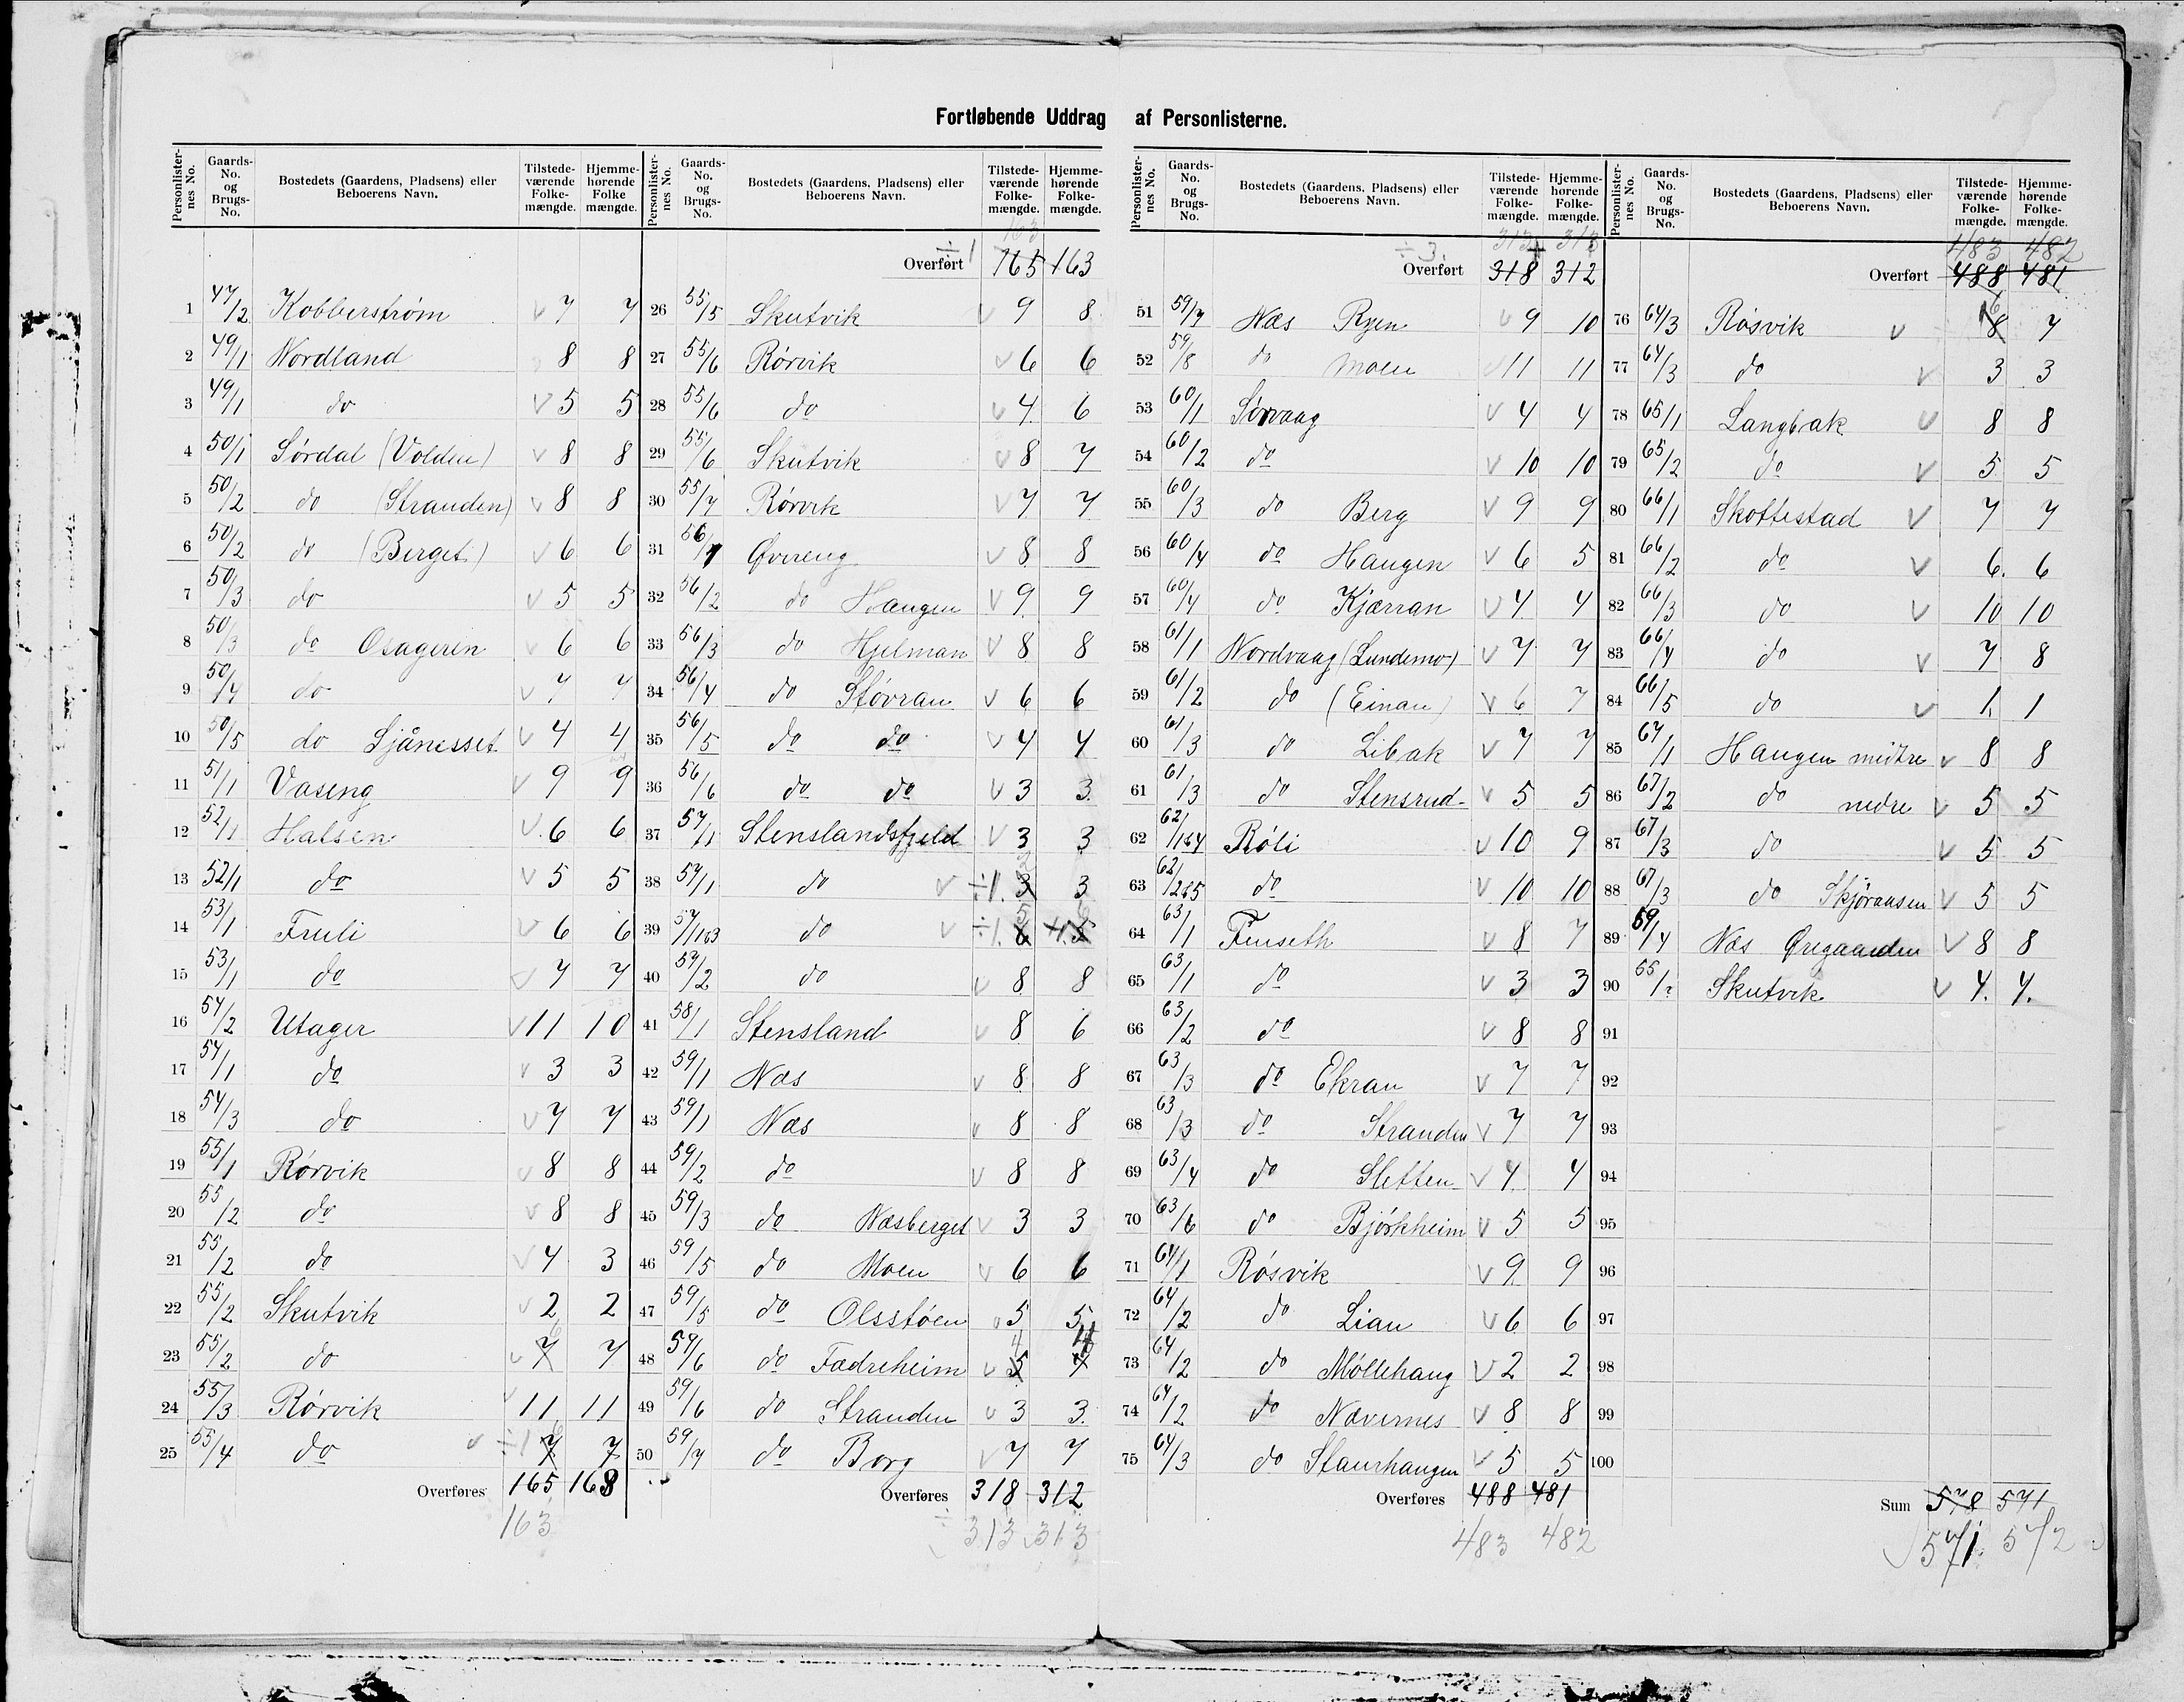 Fortløbende Uddrag af Personlisterne.
Personlisternes No. Gaards-No. og Brugs-No. Bostedets (Gaardens, Pladsens) eller Beboerens Navn. Tilstedeværende Folkemængde. Hjemmehørende Folkemængde.
1 47/2 Kobberstrøm v 7 7
2 49/1 Nordland 8 8
3 49/1 do v 5 5
4 50/1 Sørdal (Volden) v 8 8
5 50/2 do (Stranden) v 8 8
6 50/2 do (Berget) v 6 6
7 50/3 do v 5 5
8 50/3 do Osageren v 6 6
9 50/4 do v 7 7
10 50/5 do Sjånesset v 4 4
11 51/1 Vaseng v 9 9
12 52/1 Halsen v 6 6
13 52/1 do v 5 5
14 53/1 Fruli v 6 6
15 53/1 do v 7 7
16 54/2 Utager v 11 10
17 54/1 do v 3 3
18 54/3 do v 7 7
19 55/1 Rørvik v 8 8
20 55/2 do v 8 8
21 55/2 do v 4 3
22 55/2 Skutvik v 2 2
23 55/2 do v 7 6 7
24 55/3 Rørvik v 11 11
25 55/4 do v ÷1 7 7
Overføres 165 163
163
Personlisternes No. Gaards-No. og Brugs-No. Bostedets (Gaardens, Pladsens) eller Beboerens Navn. Tilstedeværende Folkemængde. Hjemmehørende Folkemængde.
163
÷1 Overført 165 163
26 55/5 Skutvik v 9 8
27 55/6 Rørvik v 6 6
28 55/6 do v 4 6
29 55/6 Skutvik v 8 7
30 55/7 Rørvik v 7 7
31 56/1 Øvreeng v 8 8
32 56/2 do Haugen v 9 9
33 56/3 do Hjelman v 8 8
34 56/4 do Støvran v 6 6
35 56/5 do do v 4 4
36 56/6 do do v 3 3
37 57/1 Stenslandsfjeld v 3 3
38 57/1 do v ÷1 3 3
39 57/1&3 do v ÷1 6 5 +1 5 6
40 57/2 do v 8 8
41 58/1 Stensland v 8 6
42 59/1 Næs v 8 8
43 59/1 Næs v 8 8
44 59/2 do v 8 8
45 59/3 do Næsberget v 3 3
46 59/5 do Moen v 6 6
47 59/5 do Olsstøen v 5 5
48 59/6 do Fædreheim v 5 4 4
49 59/6 do Stranden v 3 3
50 59/7 do Borg v 7 7
Overføres 318 312
313 313
Personlisternes No. Gaards-No. og Brugs-No. Bostedets (Gaardens, Pladsens) eller Beboerens Navn. Tilstedeværende Folkemængde. Hjemmehørende Folkemængde.
÷3 313 313
Overført 318 312
51 59/7 Næs Ryen v 9 10
52 59/8 do Moen v 11 11
53 60/1 Sørvaag v 4 4
54 60/2 do v 10 10
55 60/3 do Berg v 9 9
56 60/4 do Haugen v 6 5
57 60/4 do Kjærran v 4 4
58 61/1 Nordvaag (Lundemo) v 7 7
59 61/2 do (Einan) v 6 7
60 61/3 do Libak v 7 7
61 61/3 do Stensrud v 5 5
62 62/1&4 Røli v 10 9
63 62/2&5 do v 10 10
64 63/1 Finseth v 8 7
65 63/1 do v 3 3
66 63/2 do v 8 8
67 63/3 do Ekran v 7 7
68 63/3 do Stranden v 7 7
69 63/4 do Sletten v 4 4
70 63/6 do Bjørkheim v 5 5
71 64/1 Røsvik v 9 9
72 64/2 do Lian v 6 6
73 64/2 do Møllehaug v 2 2
74 64/2 do Nævernes v 8 8
75 64/3 do Staurhaugen v 5 5
Overføres 488 481
483 482
Personlisternes No. Gaards-No. og Brugs-No. Bostedets (Gaardens, Pladsens) eller Beboerens Navn. Tilstedeværende Folkemængde. Hjemmehørende Folkemængde.
483 482
Overført 488 481
76 64/3 Røsvik v 8 6 7
77 64/3 do v 3 3
78 65/1 Langbak v 8 8
79 65/2 do v 5 5
80 66/1 Skottestad v 7 7
81 66/2 do v 6 6
82 66/3 do v 10 10
83 66/4 do v 7 8
84 66/5 do v 1 1
85 67/1 Haugen midtre v 8 8
86 67/2 do nedre v 5 5
87 67/3 do v 5 5
88 67/3 do Skjøransen v 5 5
89 59/4 Næs Øregaarden v 8 8
90 55/2 Skutvik v 4 4
91
92
93
94
95
96
97
98
99
100
Sum 578 571
571 572